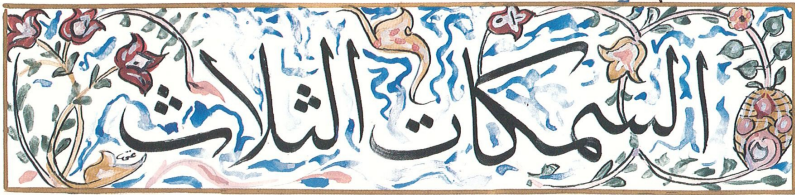 السمكات الثلاث